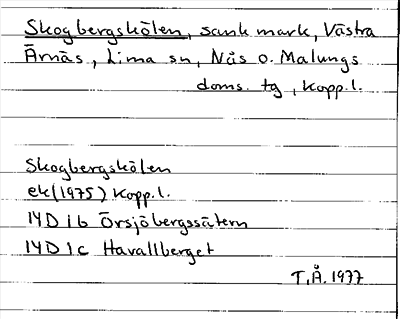 Skogbergskölen, sank mark, Västra
Ärnäs, Lima sn, Nås o. Malungs
doms. tg, Kopp.l.
Skogbergskölen
ek(1975) Kopp.l.
14D 1b Örsjöbergssätern
14D 1c Havallberget
T.Å. 1977